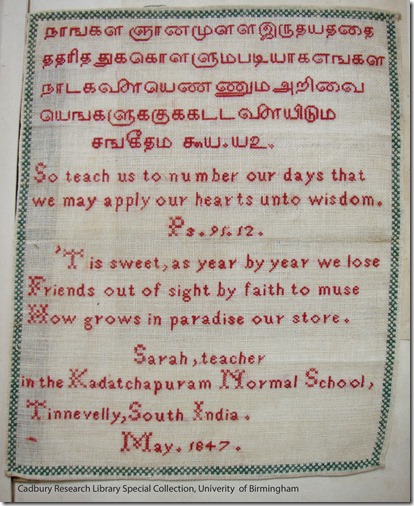 நாஙகள ஞானமுளளஇருதயததை
ததரித துககொளளுமபடியாகஎஙகள
நாடகளையெண ணுமஅறிவை
யெஙகளுககுககடடளையிடும
சஙகீதம ௯௰.௰௨.
So teach us to number our days that
we may apply our hearts unto wisdom.
Ps.91.12.
'Tis sweet, as year by year we lose
Friends out of sight by faith to muse
How grows in paradise our store.
Sarah, teacher
in the Kadatchapuram Normal School,
Tinnevelly, South India.
May. 1847.
Cadbury Research Library Special Collection, Univerity of Birmingham